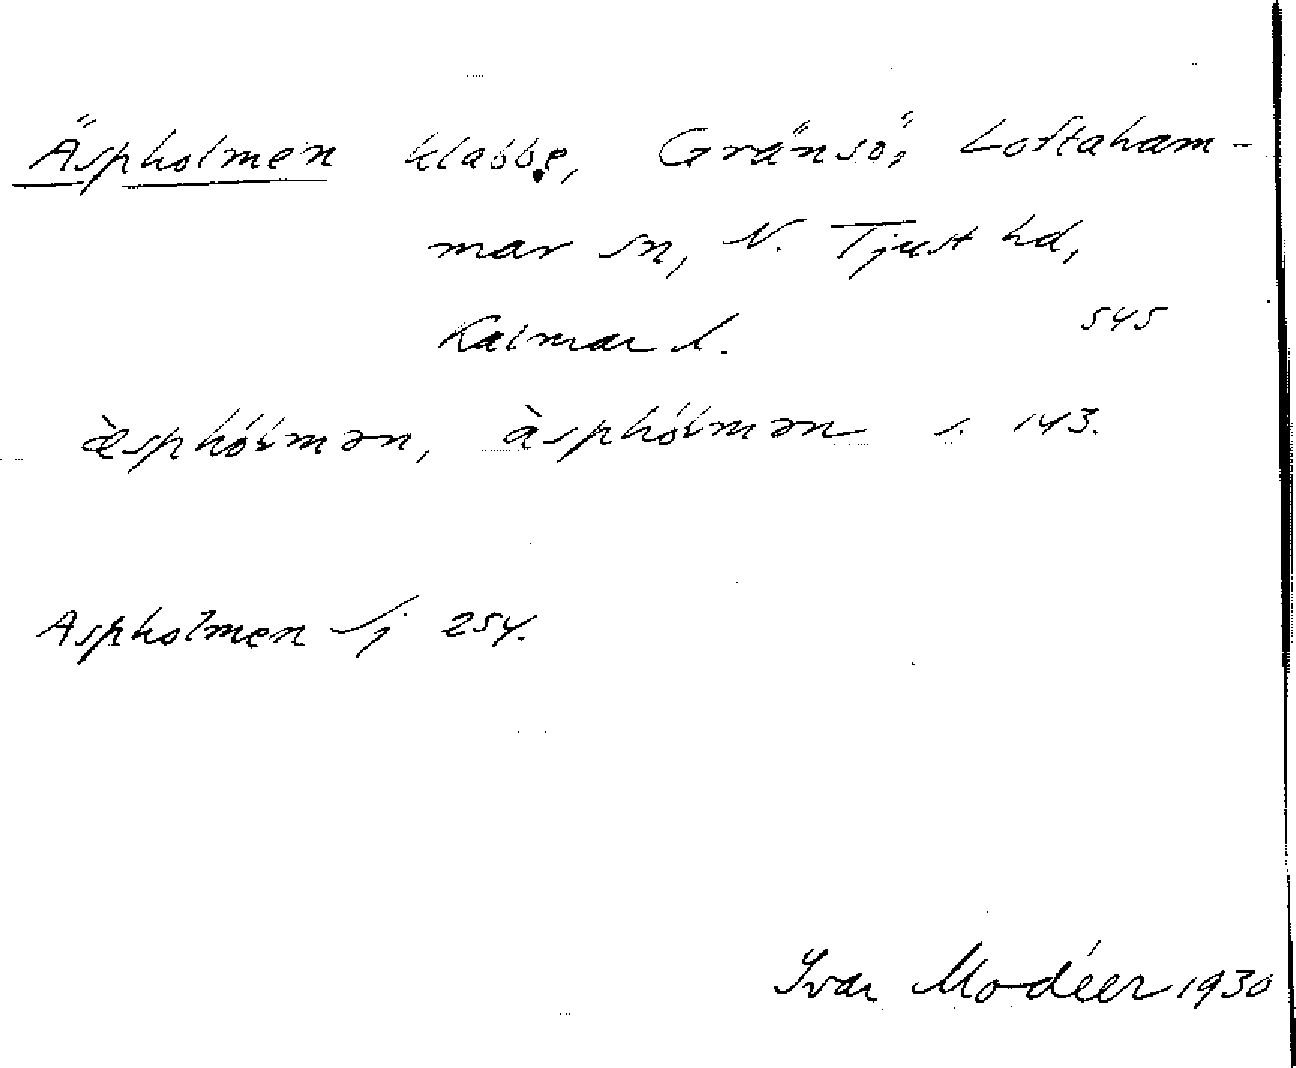 Äspholmen klabbe, Gränsö, Loftaham-
mar sn, N. Tjust hd,
Kalmar l. 545
æ̀sphólmən, àsphólmən s. 143.
Aspholmen Sj 254.
Ivar Modéer 1930